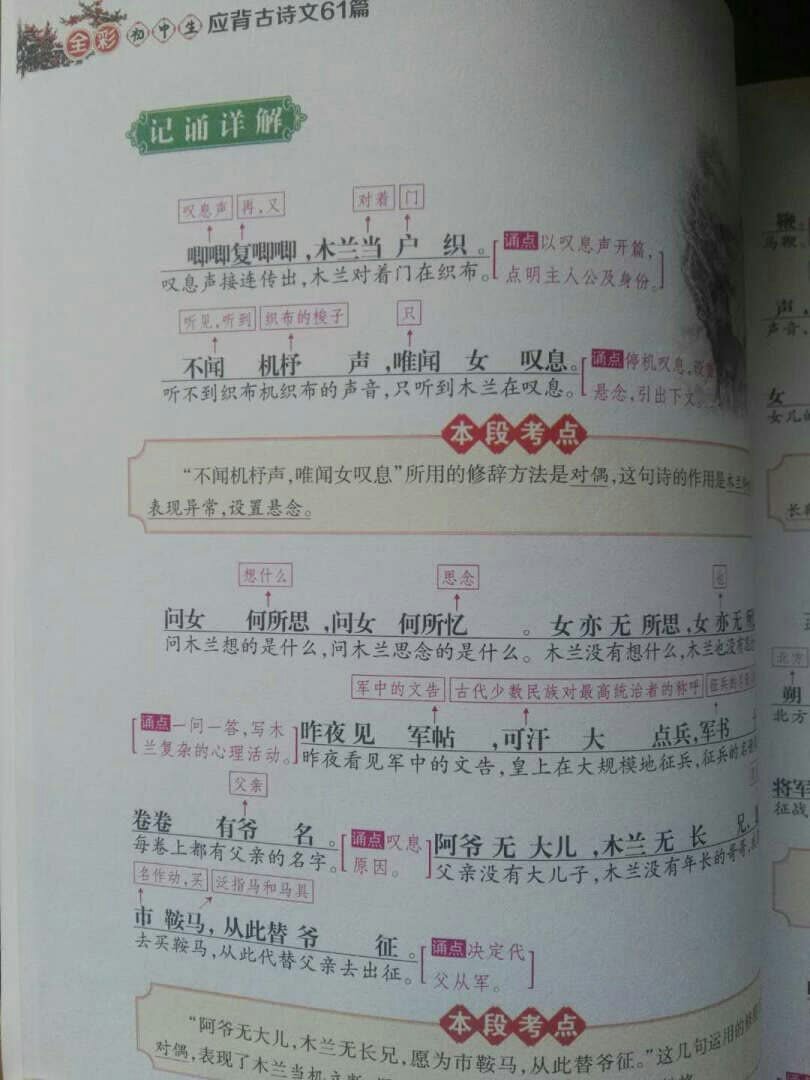 全彩初中生应背古诗文61篇
记诵详解
叹息声 再,又 对着 门
唧唧复唧唧,木兰当户织。
诵点 以叹息声开篇,
点明主人公及身份。
叹息声接连传出,木兰对着门在织布。
听见,听到 织布的梭子 只
不闻机杼声,唯闻女叹息。
诵点 停机叹息,设置
悬念,引出下文。
听不到织布机织布的声音,只听到木兰在叹息。
本段考点
“不闻机杼声,唯闻女叹息”所用的修辞方法是对偶,这句诗的作用是木兰
表现异常,设置悬念。
想什么 思念 也
问女何所思,问女何所忆。女亦无所思,女亦无所
问木兰想的是什么,问木兰思念的是什么。木兰没有想什么,木兰也没有
军中的文告 古代少数民族对最高统治者的称呼 征兵的
诵点 一问一答,写木
兰复杂的心理活动。
昨夜见军帖,可汗大点兵,军书
昨夜看见军中的文告,皇上在大规模地征兵,征兵的名
父亲
卷卷有爷名。
每卷上都有父亲的名字。
诵点 叹息
原因。
阿爷无大儿,木兰无长兄,
父亲没有大儿子,木兰没有年长的哥哥,
名作动,买 泛指马和马具
市鞍马,从此替爷征。
去买鞍马,从此代替父亲去出征。
诵点 决定代
父从军。
本段考点
“阿爷无大儿,木兰无长兄,愿为市鞍马,从此替爷征。”这几句运用的修
对偶,表现了木兰当机立断,
鞭
马鞭
声,
声音,
女
女儿
长
北方
朔
北方
将军
征战